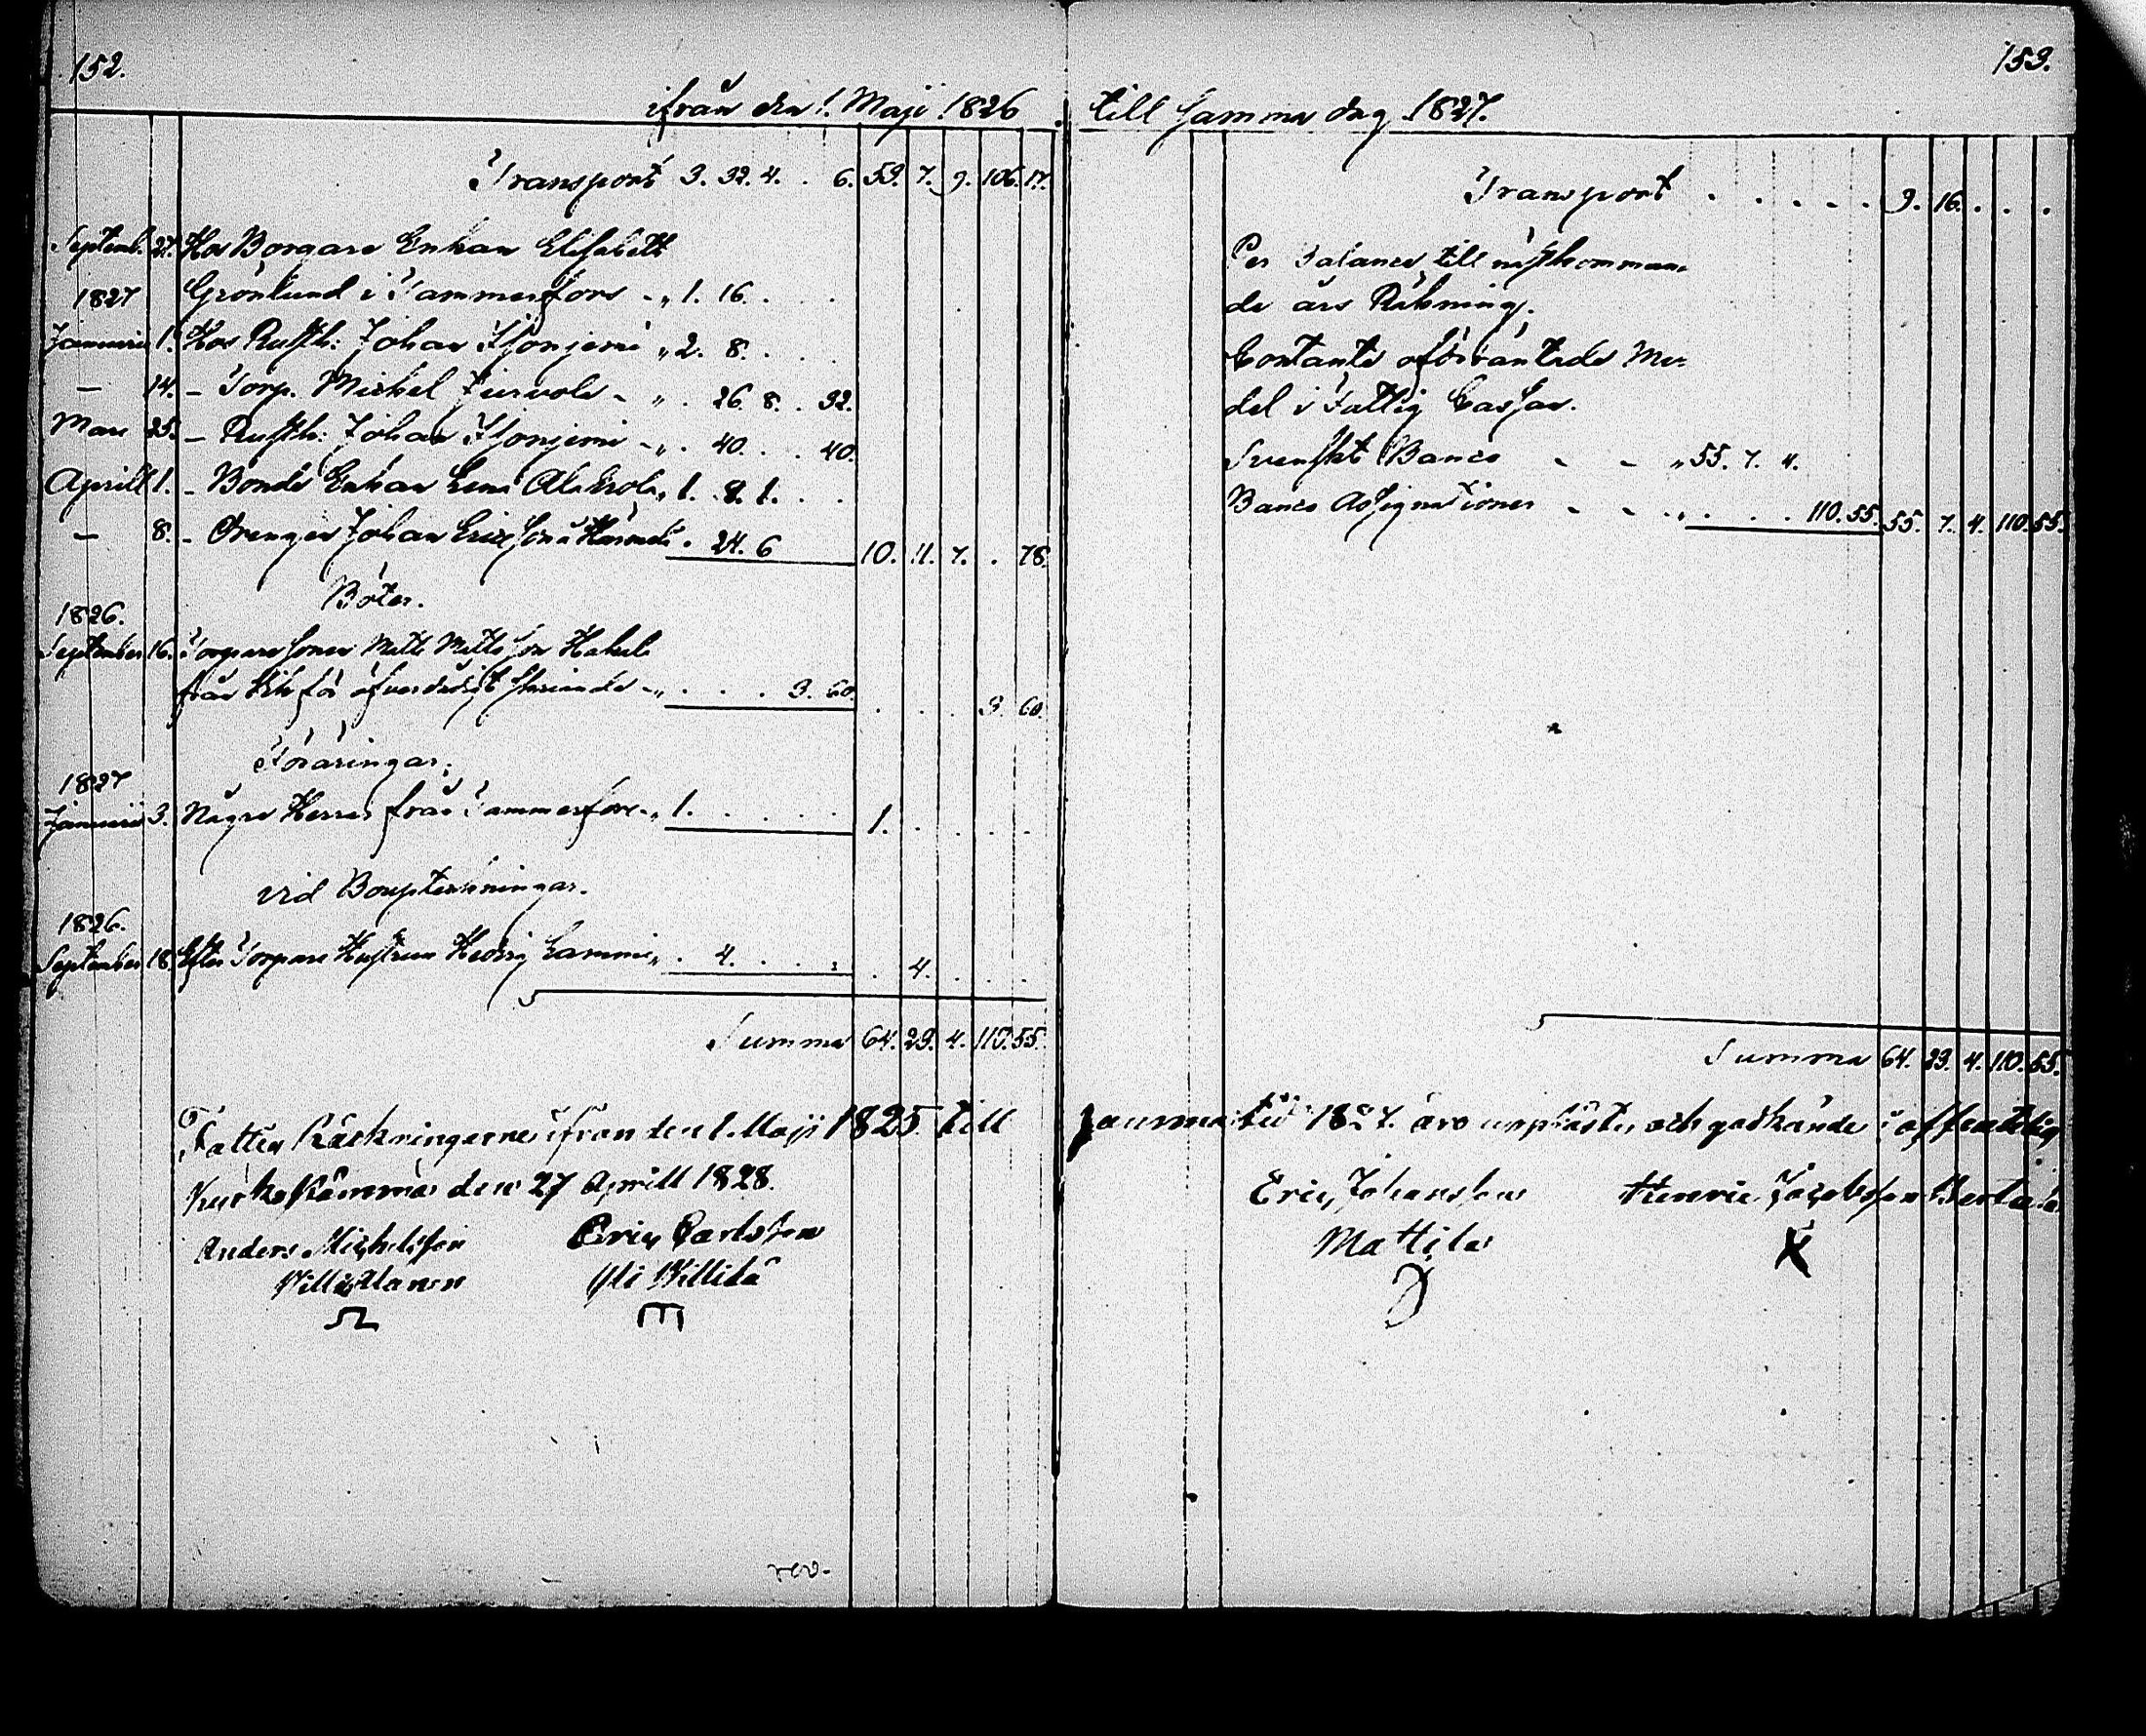 152.
ifrån den 1. Maji 1826
Transport 3. 32. 4. . 6. 53. 7. 9. 106. 17.
Septemb. 27. Hos Borgare Enkan Elisabeth
1827 Grönlund i Tammerfors - „ 1. 16. . .
Januarii 1. Hos Rusth: Johan „ 2. 8. . .
— 14. - Torp. Michel - „ . 26. 8. . 32.
Mars 25. - Rusth: Johan - „ . 40. . . 40.
Aprill 1. - Bonde Enkan Lena „ 1. 8. 1. . .
— 8. - Drengen Johan Ericsson . 24. 6 10. 11. 7. . 78.
Böter.
1826.
September 16. Torpare Sonen Matts Mattsson
från för - „ . . . 3. 60. . . . 3. 60.
Föräringar.
1827
Januarii 3. Några Herrar från Tammerfors - „ 1. . . . . 1. . . . .
vid Bouptekningar.
1826.
September 18. Efter Torpare Hustrun Hedvig Lammi „ . 4. . . . . 4. . . .
Summa 64. 23. 4. 110. 55.
Fattig Räckningarne ifrån den 1. Maji 1825 till
Kyrkostämma den 27 Aprill 1828.
Anders Michelsson Eric Carlsson
Yli Killilä
rev.
153.
till samma dag 1827.
Transport . . . . . 9. 16. . . .
Per Balance till nästkomman-
de års Räkning.
Contante oförräntade Me-
del i Fattig Cassan.
Svenskt Banco - - „ 55. 7. 4.
Banco Assignationer - - „ . . . 110. 55. 55. 7. 4. 110. 55.
Summa 64. 23. 4. 110. 55.
samma tid 1827. äro uppläste och godkände i offentelig
Eric Johansson Henric Jacobsson
Mattila
X